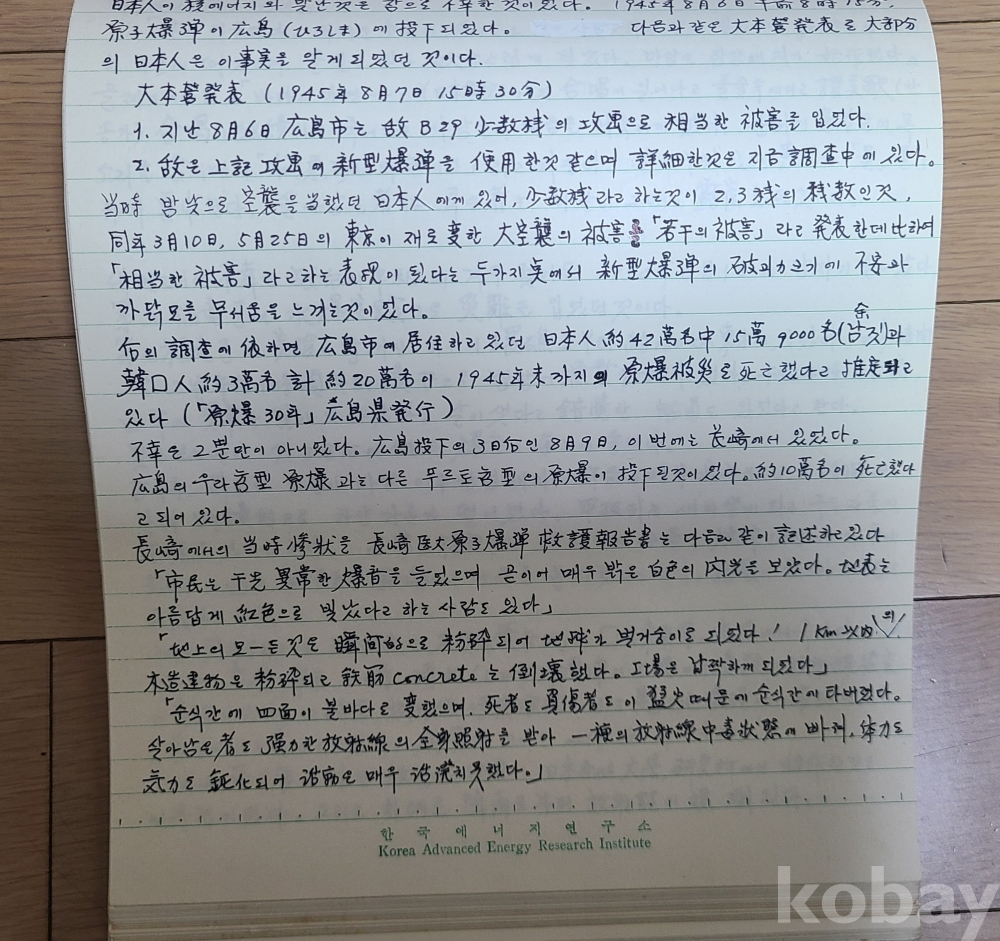 日本人이 核에너지와 맞난것은 참으로 不幸한 것이였다. 1945年8月6日 午前8時15分,
原子爆彈이 広島(ひろしま)에 投下되였다. 다음과 같은 大本營発表로 大部分
의 日本人은 이事実을 알게 되였던 것이다.
大本營発表 (1945年 8月7日 15時30分)
1. 지난 8月6日 広島市는 敵 B29 少数機의 攻击으로 相当한 被害를 입었다.
2. 敵은 上記 攻击에 新型爆弾을 使用한것 같으며 詳細한것은 지금 調査中에 있다.
当時 밤낮으로 空襲을 当했던 日本人에게 있어, 少数機라고 하는것이 2,3機의 機数인것,
同年3月10日, 5月25日의 東京이 재로 変한 大空襲의 被害를 「若干의 被害」라고 発表한데 比하여
「相当한 被害」라고하는 表現이 됬다는 두가지 点에서 新型爆弾의 破괴力크기에 不安과
까닭모를 무서움을 느껴는것이였다.
后의 調査에 依하면 広島市에 居住하고 있던 日本人 約42萬名中 15萬 9000名(남짓)과
余
韓口人 約3萬名 計 約20萬名이 1945年末까지의 原爆被災로 死亡했다고 推定되고
있다 (「原爆30年」広島県発行)
不幸은 2뿐만이 아니였다. 広島投下의 3日后인 8月9日, 이번에는 長崎에서 있었다.
広島의 우라늄型 原爆과는 다른 푸르토늄型의 原爆이 投下된것이였다. 約10萬名이 死亡했다
고 되어 있다.
長崎에서의 当時惨狀을 長崎医大原子爆弾救護報告書는 다음과 같이 記述하고있다
「市民은 于先 異常한 爆音을 들었으며 곧이어 매우 밝은 白色의 闪光을 보았다. 地表는
아름답게 紅色으로 빛났다고 하는 사람도 있다」
「地上의 모ー든것은 瞬间的으로 粉碎되어 地球가 벌거숭이로 되였다! 1Km以内의
木造建物은 粉碎되고 鉄筋concrete는 倒壞했다. 工場은 납작하게 되였다」
「순식간에 四面이 불바다로 変했으며, 死者도 負傷者도 이 猛火때문에 순식간에 타버렸다.
살아남은 者도 强力한 放射線의 全身照射를 받아 一種의 放射線中毒狀態에 빠져, 体力도
気力도 鈍化되어 活動은 매우 活溌치못했다.」
한국에너지연구소
Korea Advanced Energy Research Institute
kobay